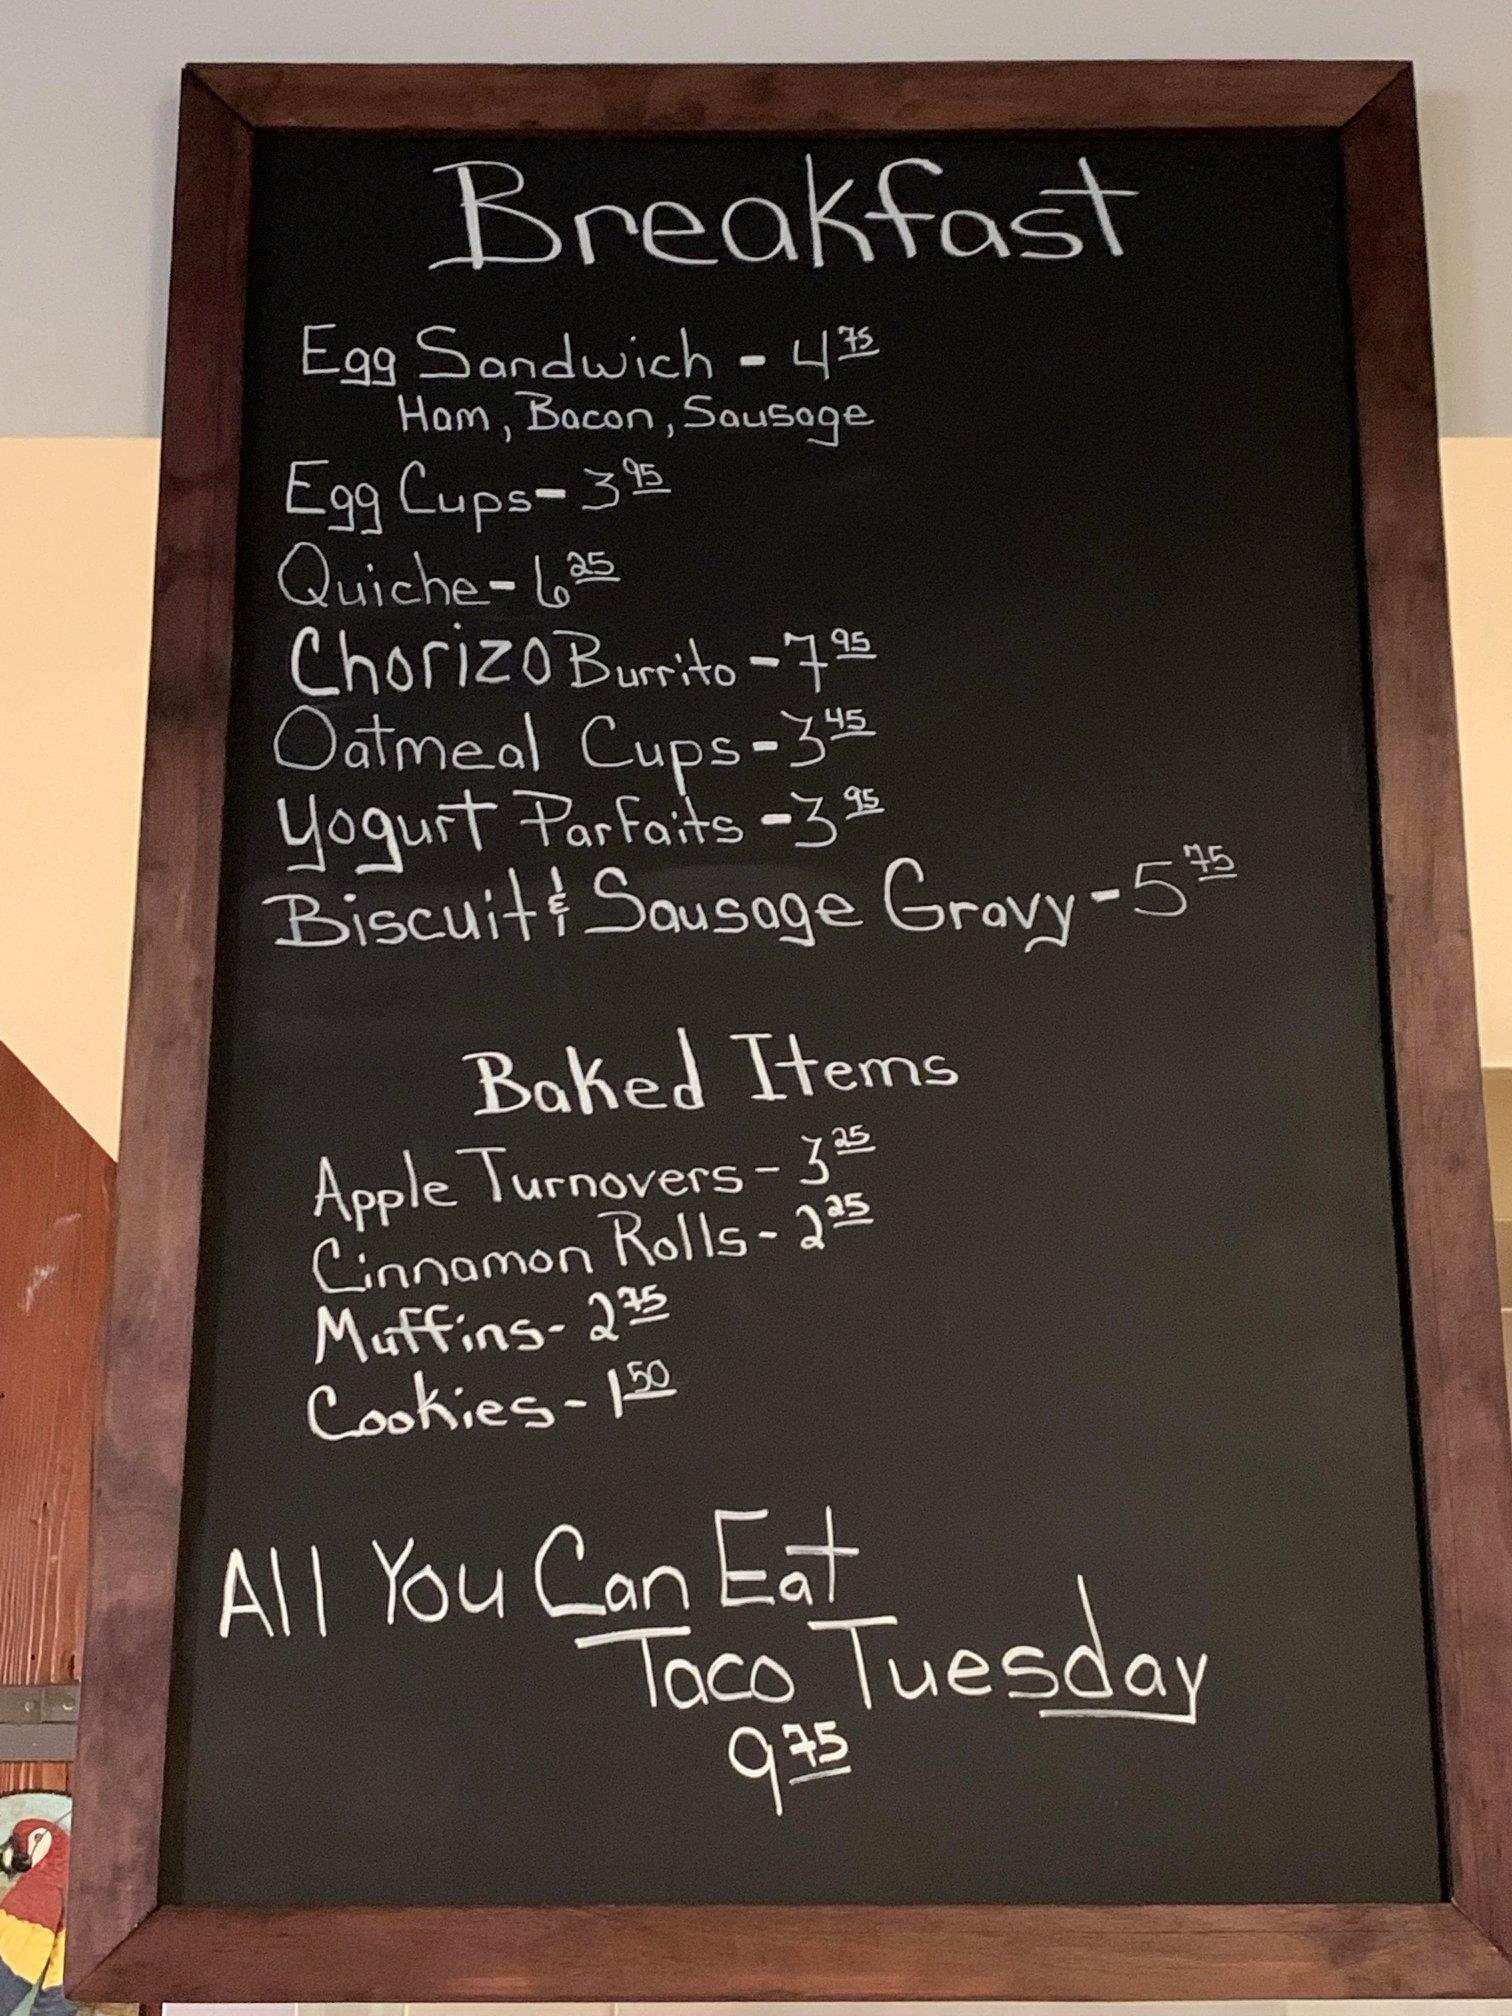 Breakfast
Egg Sandwich - 4 75
Ham, Bacon, Sausage
Egg Cups - 3 95
Quiche - 6 25
Chorizo Burrito - 7 95
Oatmeal Cups - 3 45
Yogurt Parfaits - 3 95
Biscuit & Sausage Gravy - 5 75
Baked Items
Apple Turnovers - 3 25
Cinnamon Rolls - 2 25
Muffins - 2 75
Cookies - 1 50
All You Can Eat
Taco Tuesday
9 75